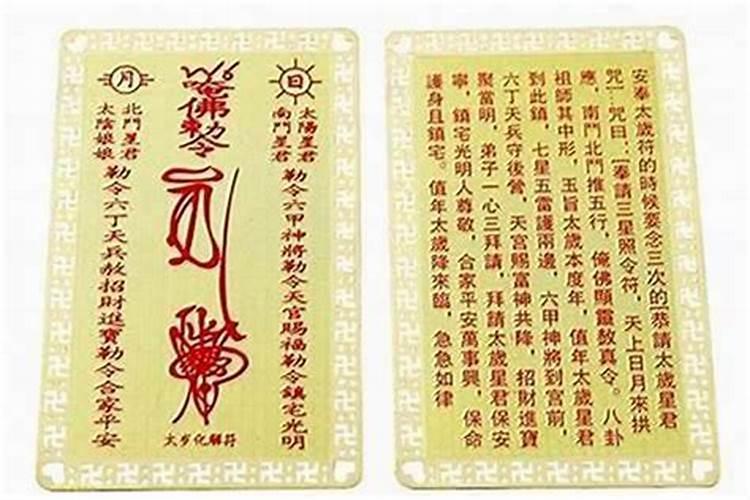 日
太陽星君
南門星君
勒令六甲神將勒令天官賜福勒令鎮宅光明
唵佛勅令
月
北門星君
太陰娘娘
勒令六丁天兵敖招財進寶勒令合家平安
太岁化解符
安奉太歲符的時候要念三次的[恭請太歲星君
咒]...咒曰:[奉請三星照令符,天上日月來拱
應,南門北門推五行,俺佛顯靈敖真令。八卦
祖師其中形,玉旨太歲本度年,值年太歲星君
到此鎮,七星五雷護兩邊,六甲神將到宮前,
六丁天兵守後營,天宮賜富神共降,招財進寶
聚當明,弟子一心三拜請,拜請太歲星君保安
寧,鎮宅光明人尊敬,合家平安萬事興,保命
護身且鎮宅。值年太歲降來臨,急急如律